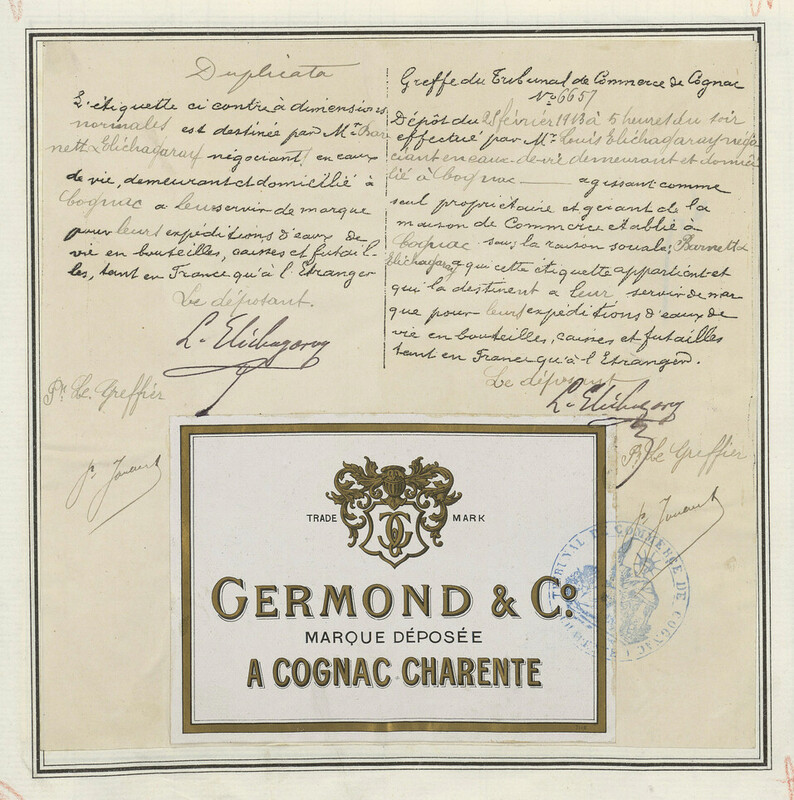 Duplicata
L'étiquette ci contre à dimensions
normales est destinée par Mr. Bar
nett & Elichagaray négociant en eaux
de vie, demeurant et domicilié à
Cognac a leur servir de marque
pour leurs expéditions d'eaux de
vie en bouteilles, caisses et futail-
les, tant en France qu'à l'Etranger
Le déposant.
L. Elichagaray
Pr. Le Greffier
Greffe du Tribunal de Commerce de Cognac
No 6657
Dépôt du 28 février 1913 à 5 heures du soir
effectué par Mr. Louis Elichagaray négo
ciant en eaux-de-vie demeurant et domici
lié à Cognac — agissant comme
seul propriétaire et gérant de la
maison de Commerce établie à
Cognac sous la raison sociale; Barnett &
Elichagaray a qui cette étiquette appartient et
qui la destinent a leur servir de mar
que pour leurs expéditions d'eaux de
vie en bouteilles, caisses et futailles
tant en France qu'à l'Etranger.
Le déposant
L. Elichagaray
Pr. Le Greffier
TRADE MARK
GERMOND & Co.
MARQUE DÉPOSÉE
A COGNAC CHARENTE
TRIBUNAL DE COMMERCE DE COGNAC